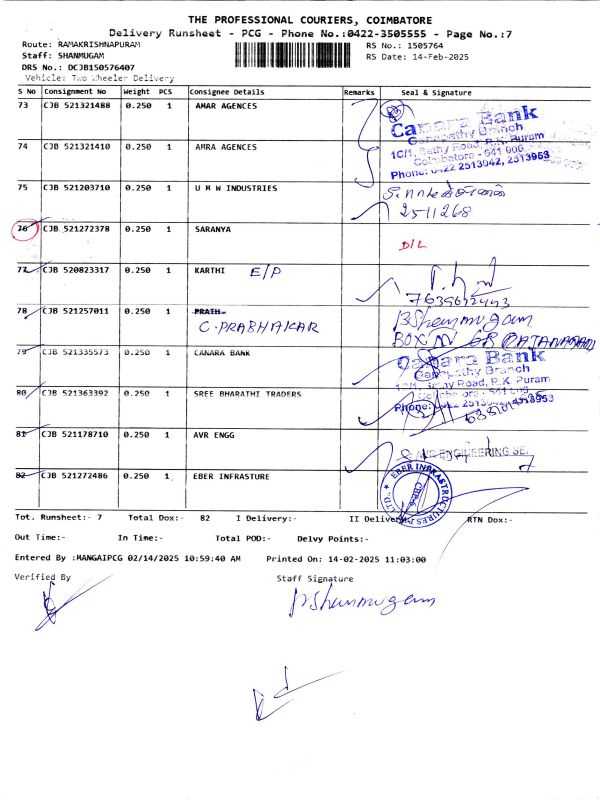 THE PROFESSIONAL COURIERS, COIMBATORE
Delivery Runsheet - PCG - Phone No.:0422-3505555 - Page No.:7
Route: RAMAKRISHNAPURAM
RS No.: 1505764
Staff: SHANMUGAM
RS Date: 14-Feb-2025
DRS No.: DCJB150576407
Vehicle: Two Wheeler Delivery
S No Consignment No Weight PCS Consignee Details Remarks Seal & Signature
73 CJB 521321488 0.250 1 AMAR AGENCES
Canara Bank
Ganapathy Branch
10/1, Sathy Road, R.K. Puram
Coimbatore - 641 006
Phone: 0422 2513042, 2513953
74 CJB 521321410 0.250 1 AMRA AGENCES
75 CJB 521203710 0.250 1 U M W INDUSTRIES
2511268
76 CJB 521272378 0.250 1 SARANYA D/L
77 CJB 520823317 0.250 1 KARTHI E/P
7639612443
78 CJB 521257011 0.250 1 PRATH
C. PRABHAKAR
BShanmugam
BOX
79 CJB 521335573 0.250 1 CANARA BANK
Canara Bank
Ganapathy Branch
10/1, Sathy Road, R.K. Puram
Coimbatore - 641 006
Phone: 0422 2513042, 2513953
80 CJB 521363392 0.250 1 SREE BHARATHI TRADERS
81 CJB 521178710 0.250 1 AVR ENGG
ENGINEERING SE
82 CJB 521272486 0.250 1 EBER INFRASTURE
EBER INFRASTRUCTURES PVT LTD.,
CBE-6
Tot. Runsheet:- 7 Total Dox:- 82 I Delivery:- II Delivery RTN Dox:-
Out Time:- In Time:- Total POD:- Delvy Points:-
Entered By :MANGAIPCG 02/14/2025 10:59:40 AM Printed On: 14-02-2025 11:03:00
Verified By Staff Signature
BShanmugam